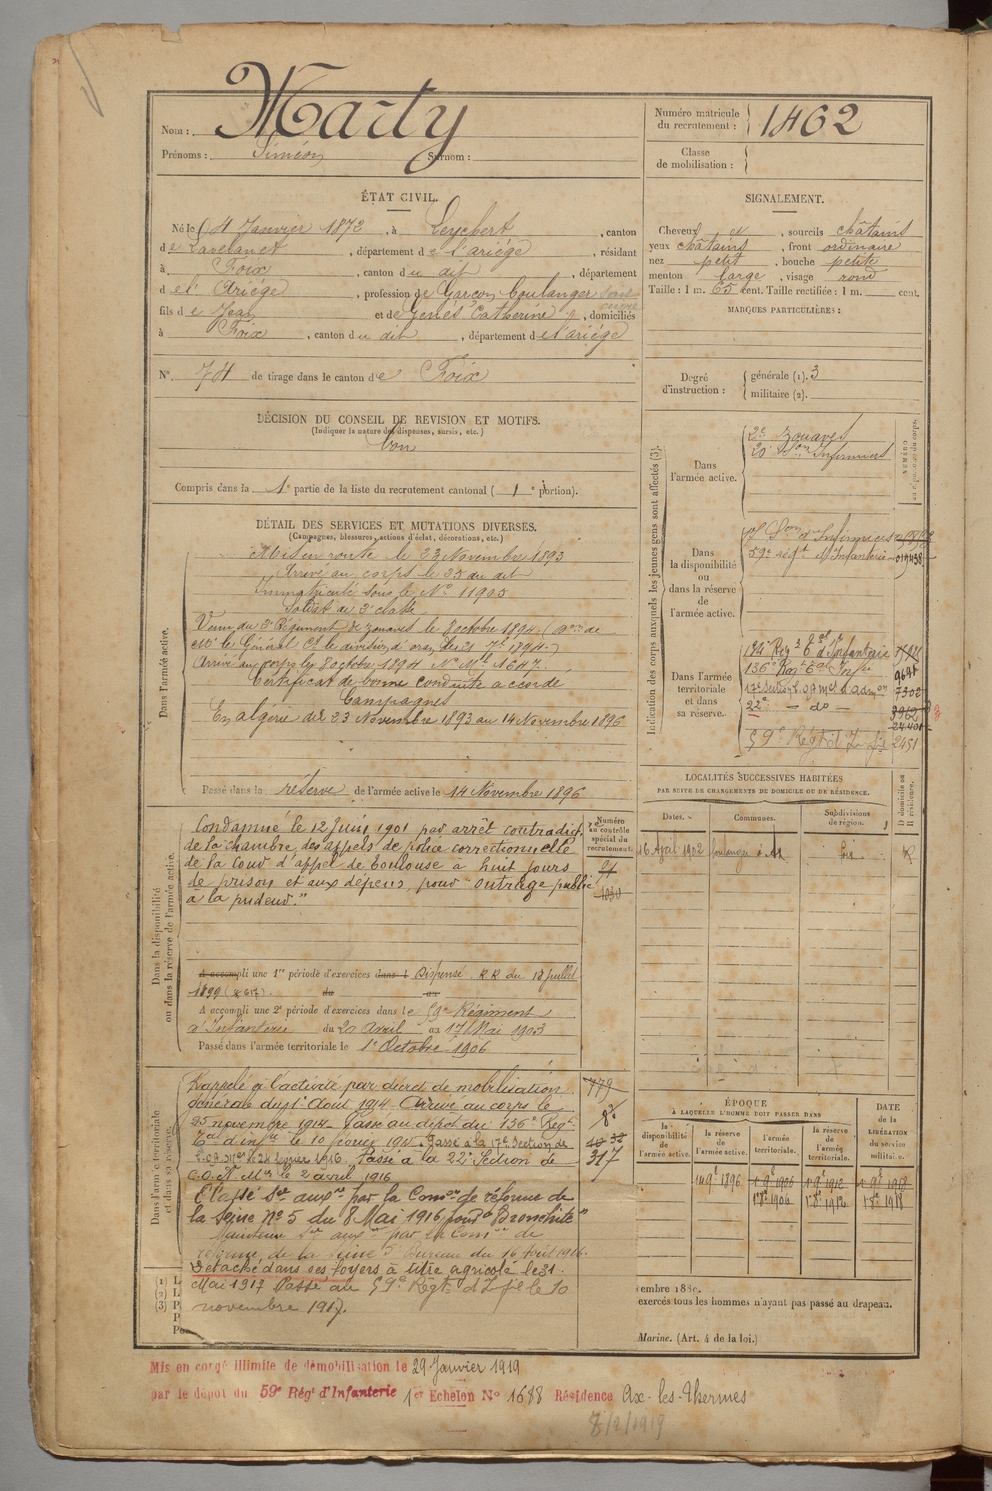 Nom : Marty
Prénoms : Siméon Surnom :
Numéro matricule du recrutement : 1462
Classe de mobilisation :
ÉTAT CIVIL.
Né le 4 Janvier 1872, à Leychert, canton
de Lavelanet, département de l'ariège, résidant
à Foix, canton du dit, département
de l' Ariège, profession de Garçon boulanger
fils de Jean et de Genès Catherine, domiciliés
à Foix, canton du dit, département de l'ariège
N° 74 de tirage dans le canton de Foix
SIGNALEMENT.
Cheveux et, sourcils châtains
yeux châtains, front ordinaire
nez petit, bouche petite
menton large, visage rond
Taille : 1 m. 65 cent. Taille rectifiée : 1 m. cent.
MARQUES PARTICULIÈRES :
Degré d'instruction : générale (1). 3
militaire (2).
DÉCISION DU CONSEIL DE REVISION ET MOTIFS.
(Indiquer la nature des dispenses, sursis, etc.)
bon
Compris dans la 1e partie de la liste du recrutement cantonal ( 1e portion).
DÉTAIL DES SERVICES ET MUTATIONS DIVERSES.
(Campagnes, blessures, actions d'éclat, décorations, etc.)
Dans l'armée active.
Mis en route le 23 Novembre 1893
Arrivé au corps le 25 au dit
Immatriculé sous le N° 11905
Soldat de 2e classe
Venu du 2e Régiment de zouaves le 8 octobre 1894 (
Mr le Général Ct la division d'oran du 21 7bre 1894.)
Arrivé au corps le 8 octobre 1894 N° Mle 1647.
Certificat de bonne conduite accordé
Campagnes
En algérie du 23 Novembre 1893 au 14 Novembre 1896
Passé dans la réserve de l'armée active le 14 Novembre 1896
Indication des corps auxquels les jeunes gens sont affectés (3).
Dans l'armée active.
2e Zouaves
20 Son Infirmiers
NUMÉRO
Dans la disponibilité ou dans la réserve de l'armée active.
Son d'Infirmiers
59e régt d'Infanterie
Dans l'armée territoriale et dans sa réserve.
136e Regt
17e Section
7302
22e - do -
3962
24401
59e Régt d'Infie 2451
Dans la disponibilité ou dans la réserve de l'armée active.
Condamné le 12 Juin 1901 par arrêt contradict.
de la chambre des appels de police correctionnelle
de la Cour d'appel de Toulouse à huit jours
de prison et aux dépens, pour "outrage public
à la pudeur."
Numéro au contrôle spécial du recrutement.
1030
A accompli une 1re période d'exercices dans l Dispensé. R.R du 18 Juillet
1899 du au
A accompli une 2e période d'exercices dans le 59e Régiment
d'Infanterie du 20 Avril au 17 Mai 1903
Passé dans l'armée territoriale le 1er Octobre 1906
LOCALITÉS SUCCESSIVES HABITÉES
PAR SUITE DE CHANGEMENTS DE DOMICILE OU DE RÉSIDENCE.
Dates. Communes. Subdivisions de région. D domicile ou R résidence.
16 Avril 1902 boulanger à Ax Foix R
Dans l'armée territoriale et dans sa réserve.
Rappelé à l'activité par décret de mobilisation
générale du 1er Août 1914. Arrivé au corps le
25 novembre 1914. Passé au dépôt du 136e Régt
d'infie le 10 février 191 . Passé à la 17e Section de
. Passé à la 22e Section de
C.O.A. Mres le 2 avril 1916
Classé Sce auxre par la Comon de réforme de
la Seine N° 5 du 8 Mai 1916 pour "Bronchite"
Maintenu Sce auxre par la Comon de
réforme de la Seine Bureau du 16 Août 1916.
Détaché dans ses foyers à titre agricole le 31.
Mai 1917 Passé au 59e Régt d'Infie le 10
novembre 1917.
779
317
ÉPOQUE
À LAQUELLE L'HOMME DOIT PASSER DANS
la disponibilité de l'armée active.
la réserve de l'armée active.
l'armée territoriale.
la réserve de l'armée territoriale.
DATE de la LIBÉRATION du service militaire.
14 9bre 1896 1 9 1906 1 9 1912 1 9 1918
1 8bre 1906 1 8bre 1912 1 8bre 1918
(1) L
(2) L
(3) P
P
embre 188
exercés tous les hommes n'ayant pas passé au drapeau.
Marine. (Art. 4 de la loi.)
Mis en congé illimité de démobilisation le 29 Janvier 1919
par le dépôt du 59e Régt d'Infanterie 1er Echelon N° 1688 Résidence Ax-les-Thermes
8/2/1919